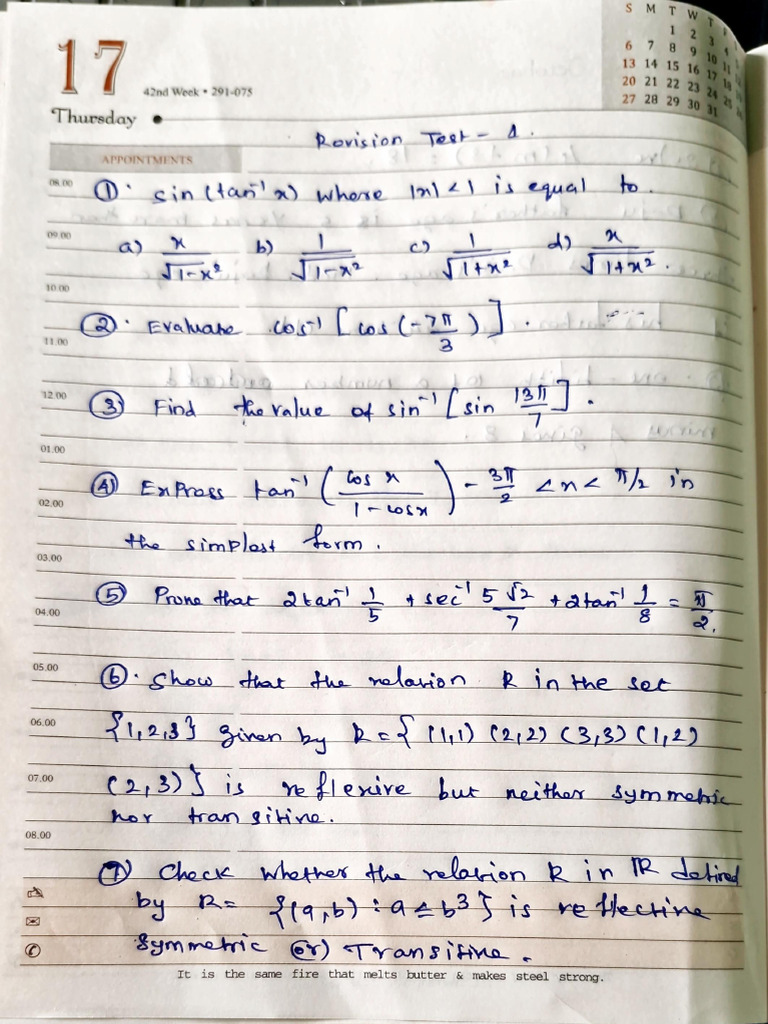 S M T W T F
1 2 3 4
6 7 8 9 10 11
13 14 15 16 17 18
20 21 22 23 24 25
27 28 29 30 31
17
42nd Week • 291-075
Thursday
Revision Test - 1.
APPOINTMENTS
08.00
① sin(tan⁻¹ x) where |x| < 1 is equal to.
09.00
a) x/√1-x² b) 1/√1-x² c) 1/√1+x² d) x/√1+x².
10.00
② Evaluate cos⁻¹ [cos (-7π/3)].
11.00
12.00
③ Find the value of sin⁻¹ [sin 13π/7].
01.00
④ Express tan⁻¹ (cos x/1-cosx) - 3π/2 < x < π/2 in
02.00
the simplest form.
03.00
⑤ Prove that 2tan⁻¹ 1/5 + sec⁻¹ 5√2/7 + 2tan⁻¹ 1/8 = π/2.
04.00
05.00
⑥ Show that the relation R in the set
06.00
{1,2,3} given by R = { (1,1) (2,2) (3,3) (1,2)
07.00
(2,3)} is reflexive but neither symmetric
nor transitive.
08.00
⑦ Check whether the relation R in IR defined
by R = {(a,b) : a ≤ b³} is reflective
symmetric (or) Transitive.
It is the same fire that melts butter & makes steel strong.